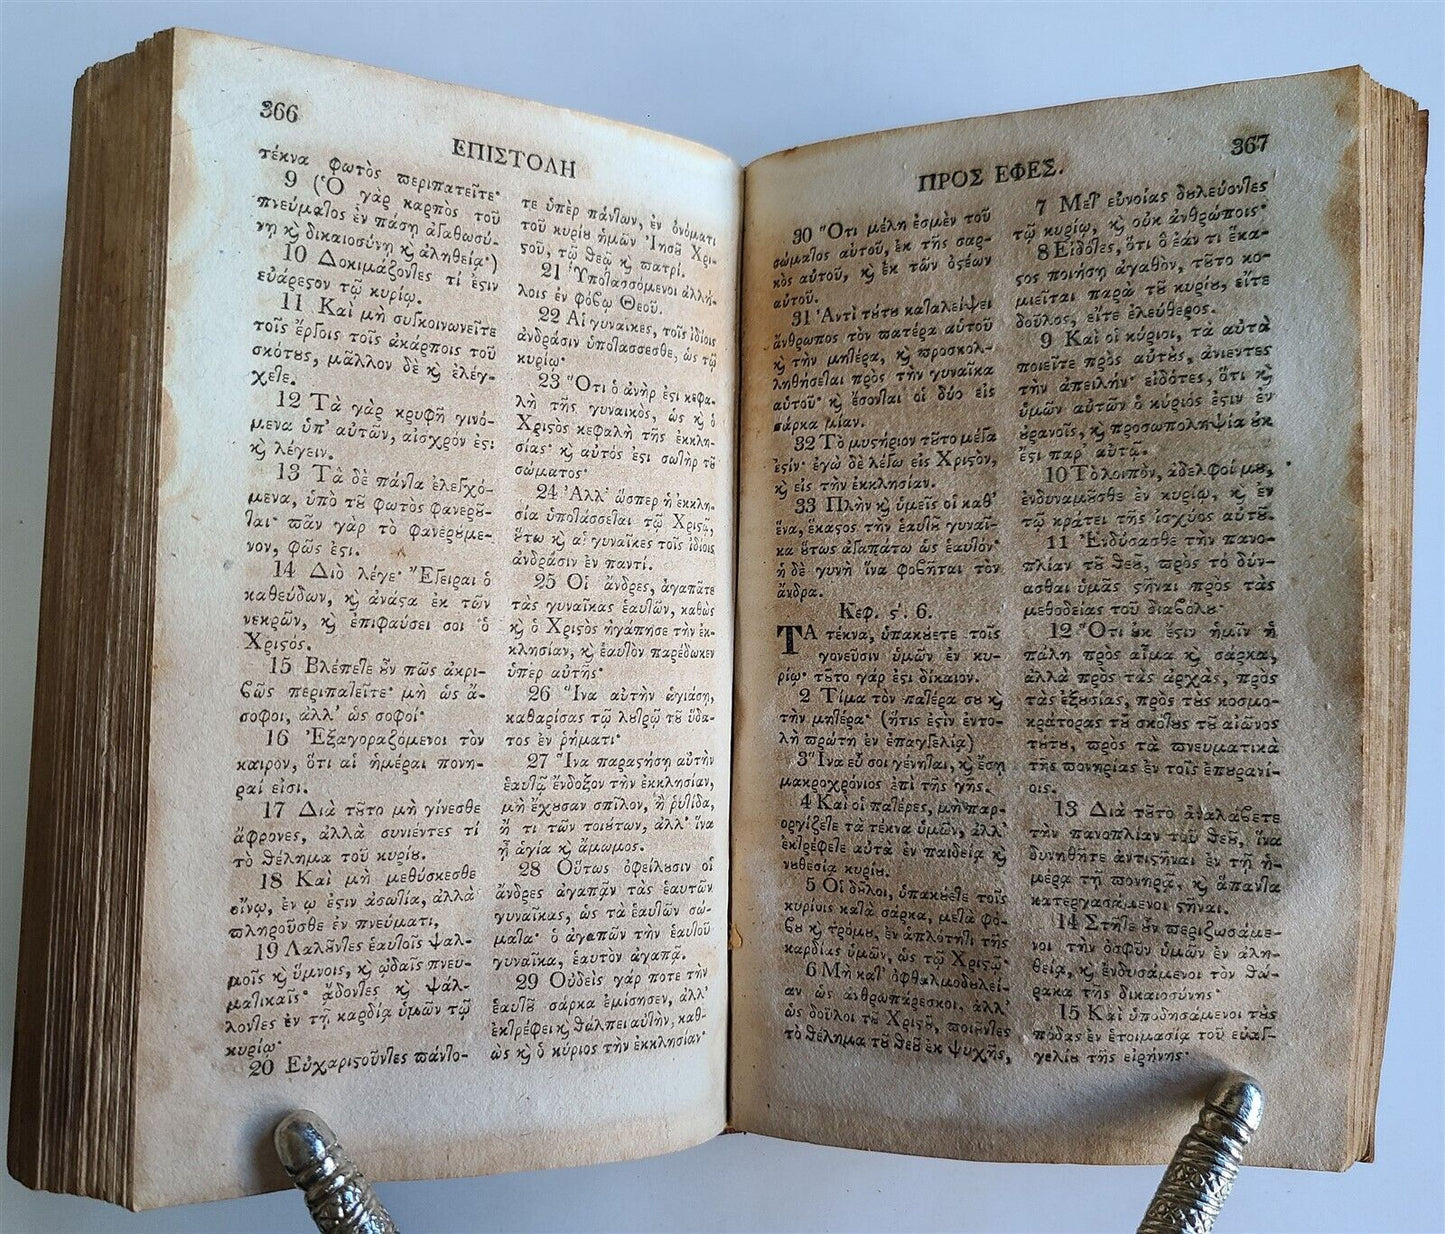 366
ΕΠΙΣΤΟΛΗ
τέκνα φωτὸς ϖεριπατεῖτε·
9 (Ὁ γὰρ καρπὸς τοῦ
πνεύμαῖος ἐν πάση ἀγαθωσύ-
νῃ ϗ δικαιοσύνῃ ϗ ἀληθείᾳ·)
10 Δοκιμάζονῖες τί ἐϛιν
εὐάρεϛον τῷ κυρίῳ.
11 Καὶ μὴ συγκοινωνεῖτε
τοῖς ἔργοις τοῖς ἀκάρποις τοῦ
σκότȣς, μᾶλλον δὲ ϗ ἐλέγ-
χεῖε.
12 Τὰ γὰρ κρυφῆ γινό-
μενα ὑπ' αὐτῶν, αἰσχρόν ἐϛι
ϗ λέγειν.
13 Τὰ δὲ πάνῖα ἐλεγχό-
μενα, ὑπὸ τȣ͂ φωτὸς φανερȣ͂-
ῖαι· ϖᾶν γὰρ τὸ φανερȣ́με-
νον, φῶς ἐϛι.
14 Διὸ λέγει· Ἔγειραι ὁ
καθεύδων, ϗ ἀνάϛα ἐκ τῶν
νεκρῶν, ϗ ἐπιφαύσει σοι ὁ
Χριϛός.
15 Βλέπεῖε ȣ̓͂ν πῶς ἀκρι-
ϐῶς περιπαῖεῖτε· μὴ ὡς ἄ-
σοφοι, ἀλλ' ὡς σοφοί·
16 Ἐξαγοραζόμενοι τὸν
καιρὸν, ὅτι αἱ ἡμέραι πονη-
ραί εἰσι.
17 Διὰ τȣ͂το μὴ γίνεσθε
ἄφρονες, ἀλλὰ συνιέντες τί
τὸ ϑέλημα τοῦ κυρίȣ.
18 Καὶ μὴ μεθύσκεσθε
οἴνῳ, ἐν ᾧ ἐϛιν ἀσωτία, ἀλλὰ
ϖληροῦσθε ἐν πνεύματι,
19 Λαλȣ͂νῖες ἑαυτοῖς ψαλ-
μοῖς ϗ ὕμνοις, ϗ ᾠδαῖς πνευ-
μαῖικαῖς· ᾄδονῖες ϗ ψάλ-
λονῖες ἐν τῇ καρδίᾳ ὑμῶν τῷ
κυρίῳ·
20 Εὐχαριϛοῦνῖες ϖάνῖο-
τε ὑπὲρ πάνῖων, ἐν ὀνόματι
τοῦ κυρίȣ ἡμῶν Ἰησȣ͂ Χρι-
ϛοῦ, τῷ ϑεῷ ϗ πατρί.
21 Ὑποῖασσόμενοι ἀλλή-
λοις ἐν φόϐῳ Θεοῦ.
22 Αἱ γυναῖκες, τοῖς ἰδίοις
ἀνδράσιν ὑποῖάσσεσθε, ὡς τῷ
κυρίῳ·
23 Ὅτι ὁ ἀνήρ ἐϛι κεφα-
λὴ τῆς γυναικὸς, ὡς ϗ ὁ
Χριϛὸς κεφαλὴ τῆς ἐκκλη-
σίας· ϗ αὐτός ἐϛι σωῖὴρ τȣ͂
σώματος·
24 Ἀλλ' ὥσπερ ἡ ἐκκλη-
σία ὑποῖάσσεῖαι τῷ Χριϛῷ,
ȣ̔́τω ϗ αἱ γυναῖκες τοῖς ἰδίοις
ἀνδράσιν ἐν παντί.
25 Οἱ ἄνδρες, ἀγαπᾶτε
τὰς γυναῖκας ἑαυῖῶν, καθὼς
ϗ ὁ Χριϛὸς ἠγάπησε τὴν ἐκ-
κλησίαν, ϗ ἑαυῖὸν παρέδωκεν
ὑπὲρ αὐτῆς·
26 Ἵνα αὐτὴν ἁγιάσῃ,
καθαρίσας τῷ λȣῖρῷ τȣ͂ ὕδα-
τος ἐν ῥήματι·
27 Ἵνα παραϛήσῃ αὐτὴν
ἑαυῖῷ ἔνδοξον τὴν ἐκκλησίαν,
μὴ ἔχȣσαν σπῖλον, ἢ ῥυῖίδα,
ἤ τι τῶν τοιȣ́των, ἀλλ' ἵνα
ᾖ ἁγία ϗ ἄμωμος.
28 Οὕτως ὀφείλȣσιν οἱ
ἄνδρες ἀγαπᾷν τὰς ἑαυτῶν
γυναῖκας, ὡς τὰ ἑαυῖῶν σώ-
μαῖα· ὁ ἀγαπῶν τὴν ἑαυῖοῦ
γυναῖκα, ἑαυτὸν ἀγαπᾷ.
29 Οὐδεὶς γάρ ποτε τὴν
ἑαυῖȣ͂ σάρκα ἐμίσησεν, ἀλλ'
ἐκῖρέφει ϗ ϑάλπει αυῖὴν, καθ-
ὼς ϗ ὁ κύριος τὴν ἐκκλησίαν·
367
ΠΡΟΣ ΕΦΕΣ.
30 Ὅτι μέλη ἐσμὲν τοῦ
σώμαῖος αὐτοῦ, ἐκ τῆς σαρ-
κὸς αὐτοῦ, ϗ ἐκ τῶν ὀϛέων
αὐτοῦ.
31 Ἀντὶ τȣ́τȣ καῖαλείψει
ἄνθρωπος τὸν πατέρα αὐτοῦ
ϗ τὴν μηῖέρα, ϗ προσκολ-
ληθήσεῖαι πρὸς τὴν γυναῖκα
αὑτοῦ· ϗ ἔσονῖαι οἱ δύο εἰς
σάρκα μίαν.
32 Τὸ μυϛήριον τȣ͂το μέγα
ἐϛίν· ἐγὼ δὲ λέγω εἰς Χριϛὸν,
ϗ εἰς τὴν ἐκκλησίαν.
33 Πλὴν ϗ ὑμεῖς οἱ καθ'
ἕνα, ἕκαϛος τὴν ἑαυῖȣ͂ γυναῖ-
κα ȣ̔́τως ἀγαπάτω ὡς ἑαυῖόν·
ἡ δὲ γυνὴ ἵνα φοϐῆται τὸν
ἄνδρα.
Κεφ. ϛʹ. 6.
ΤΑ τέκνα, ὑπακȣ́ετε τοῖς
γονεῦσιν ὑμῶν ἐν κυ-
ρίῳ· τȣ͂το γάρ ἐϛι δίκαιον.
2 Τίμα τὸν παῖέρα σȣ ϗ
τὴν μηῖέρα· (ἥτις ἐϛὶν ἐντο-
λὴ πρώτη ἐν ἐπαγγελίᾳ)
3 Ἵνα εὖ σοι γένηῖαι, ϗ ἔσῃ
μακροχρόνιος ἐπὶ τῆς γῆς.
4 Καὶ οἱ παῖέρες, μὴ παρ-
οργίζεῖε τὰ τέκνα ὑμῶν, ἀλλ'
ἐκῖρέφεῖε αὐτὰ ἐν παιδείᾳ ϗ
νȣθεσίᾳ κυρίȣ.
5 Οἱ δȣ͂λοι, ὑπακȣ́εῖε τοῖς
κυρίοις καῖὰ σάρκα, μεῖὰ φό-
ϐȣ ϗ τρόμȣ, ἐν ἁπλότηῖι τῆς
καρδίας ὑμῶν, ὡς τῷ Χριϛῷ·
6 Μὴ καῖ' ὀφθαλμοδȣλεί-
αν ὡς ἀνθρωπάρεσκοι, ἀλλ'
ὡς δοῦλοι τȣ͂ Χριϛȣ͂, ποιȣ͂νῖες
τὸ ϑέλημα τȣ͂ ϑεȣ͂ ἐκ ψυχῆς,
7 Μεῖ' εὐνοίας δȣλεύονῖες
τῷ κυρίῳ, ϗ οὐκ ἀνθρώποις·
8 Εἰδότες, ὅτι ὃ ἐάν τι ἕκα-
ϛος ποιήσῃ ἀγαθὸν, τȣ͂το κο-
μιεῖται παρὰ τȣ͂ κυρίȣ, εἴτε
δοῦλος, εἴτε ἐλεύθερος.
9 Καὶ οἱ κύριοι, τὰ αὐτὰ
ποιεῖτε πρὸς αὐτȣ̀ς, ἀνιέντες
τὴν ἀπειλήν· εἰδότες, ὅτι ϗ
ὑμῶν αὐτῶν ὁ κύριός ἐϛιν ἐν
ȣ̓ρανοῖς, ϗ προσωποληψία ȣ̓κ
ἔϛι παρ' αὐτῷ.
10 Τὸ λοιπὸν, ἀδελφοί μȣ,
ἐνδυναμȣ͂σθε ἐν κυρίῳ, ϗ ἐν
τῷ κράτει τῆς ἰσχύος αὐτȣ͂.
11 Ἐνδύσασθε τὴν πανο-
πλίαν τȣ͂ ϑεȣ͂, πρὸς τὸ δύν-
ασθαι ὑμᾶς ϛῆναι πρὸς τὰς
μεθοδείας τοῦ διαϐόλȣ·
12 Ὅτι ȣ̓κ ἔϛιν ἡμῖν ἡ
πάλη πρὸς αἷμα ϗ σάρκα,
ἀλλὰ πρὸς τὰς ἀρχὰς, πρὸς
τὰς ἐξȣσίας, πρὸς τȣ̀ς κοσμο-
κράτορας τȣ͂ σκότȣς τȣ͂ αἰῶνος
τȣ́τȣ, ϖρὸς τὰ ϖνευματικὰ
τῆς πονηρίας ἐν τοῖς ἐπȣρανί-
οις.
13 Διὰ τȣ͂το ἀναλάϐετε
τὴν πανοπλίαν τοῦ ϑεȣ͂, ἵνα
δυνηθῆτε ἀντιϛῆναι ἐν τῇ ἡ-
μέρᾳ τῇ πονηρᾷ, ϗ ἅπανῖα
κατεργασάμενοι ϛῆναι.
14 Στῆῖε ȣ̓͂ν ϖεριζωσάμε-
νοι τὴν ὀσφὺν ὑμῶν ἐν ἀλη-
θείᾳ, ϗ ἐνδυσάμενοι τὸν ϑώ-
ρακα τῆς δικαιοσύνης·
15 Καὶ ὑποδησάμενοι τȣ̀ς
πόδας ἐν ἑτοιμασίᾳ τοῦ εὐαγ-
γελίȣ τῆς εἰρήνης·